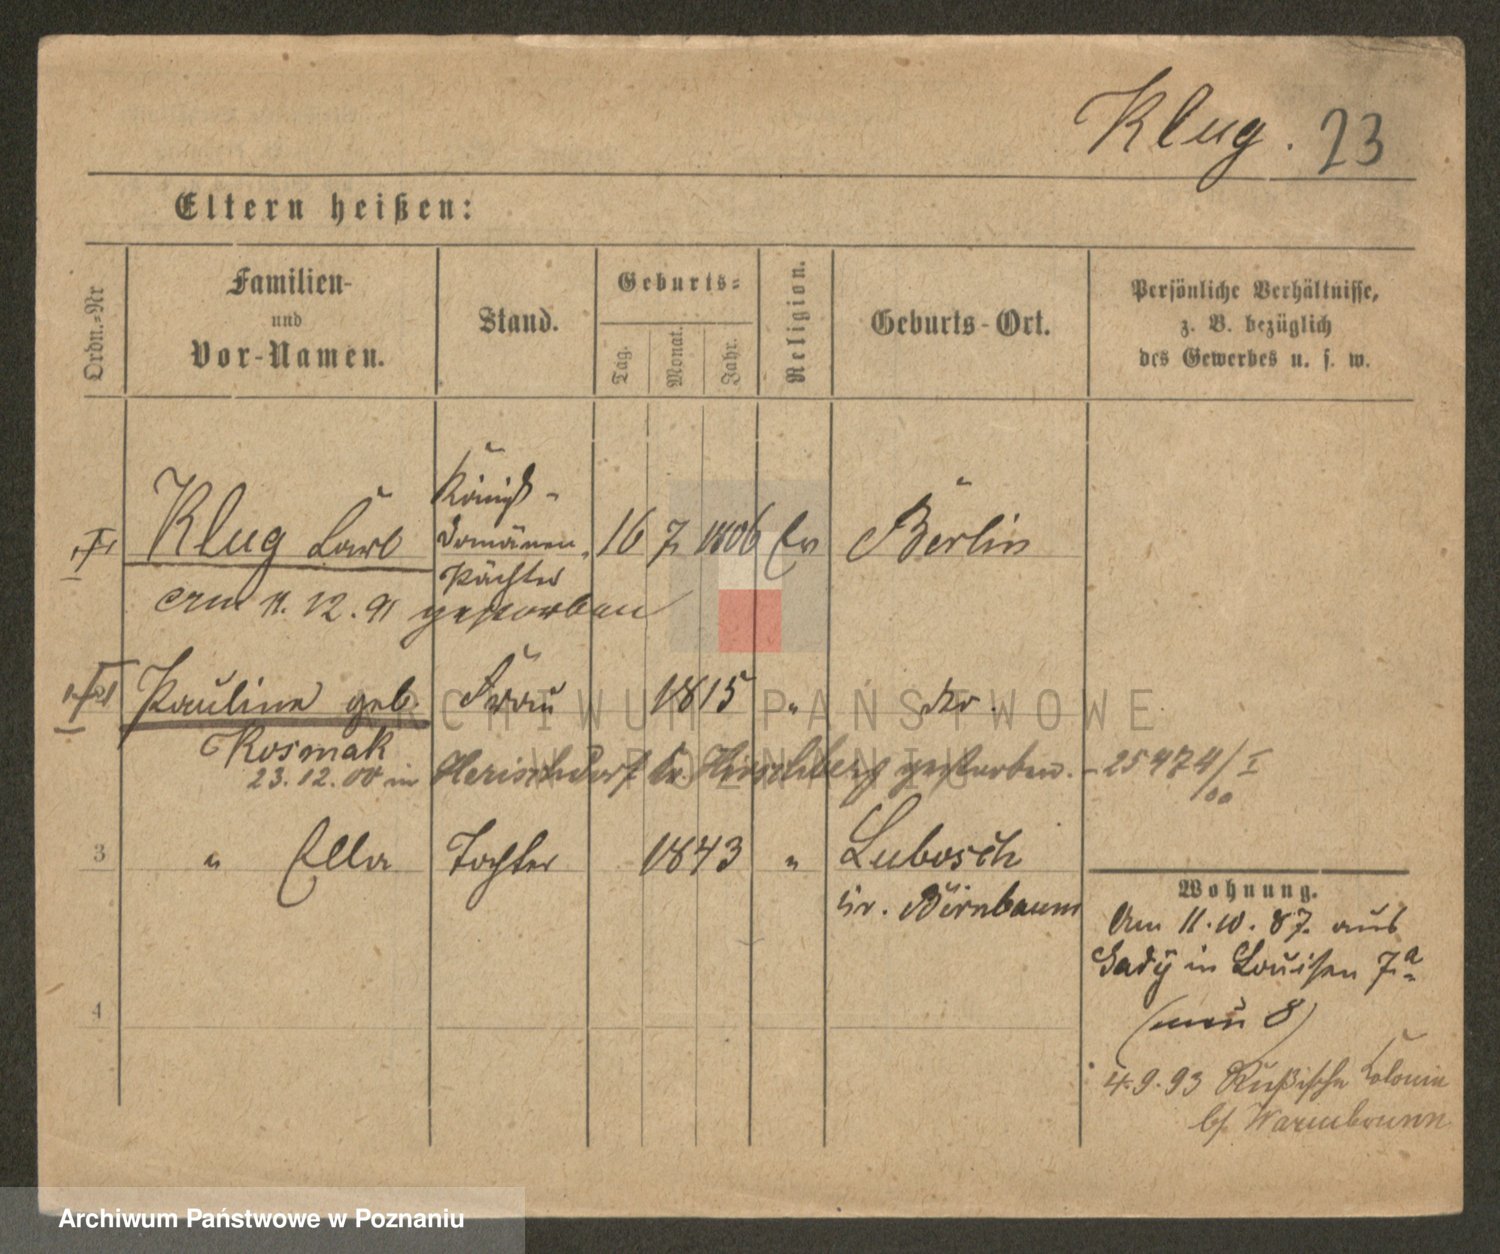 Klug. 23
Eltern heißen:
Ordn.-Nr
Familien-
und
Vor-Namen.
Stand.
Geburts-
Tag.
Monat.
Jahr.
Religion.
Geburts-Ort.
Persönliche Verhältnisse,
z. B. bezüglich
des Gewerbes u. s. w.
Klug Carl
Königl.-
Domänen
Pächter
16 7. 1806 Ev Berlin
am 11. 12. 91 gestorben
Pauline geb. Frau 1815 "
Kosmak
23.12.00 in Herischdorf Kr. Hirschberg gestorben. - 25474/I
00
3 " Ella Tochter 1843 " Lubosch
Kr. Birnbaum
4
Wohnung.
Am 11.10.87. aus
Gady in Louisen 7.a
(neu 8)
4.9.93 Rußische Colonie
b/ Warmbrunn
ARCHIWUM PAŃSTWOWE
W POZNANIU
Archiwum Państwowe w Poznaniu